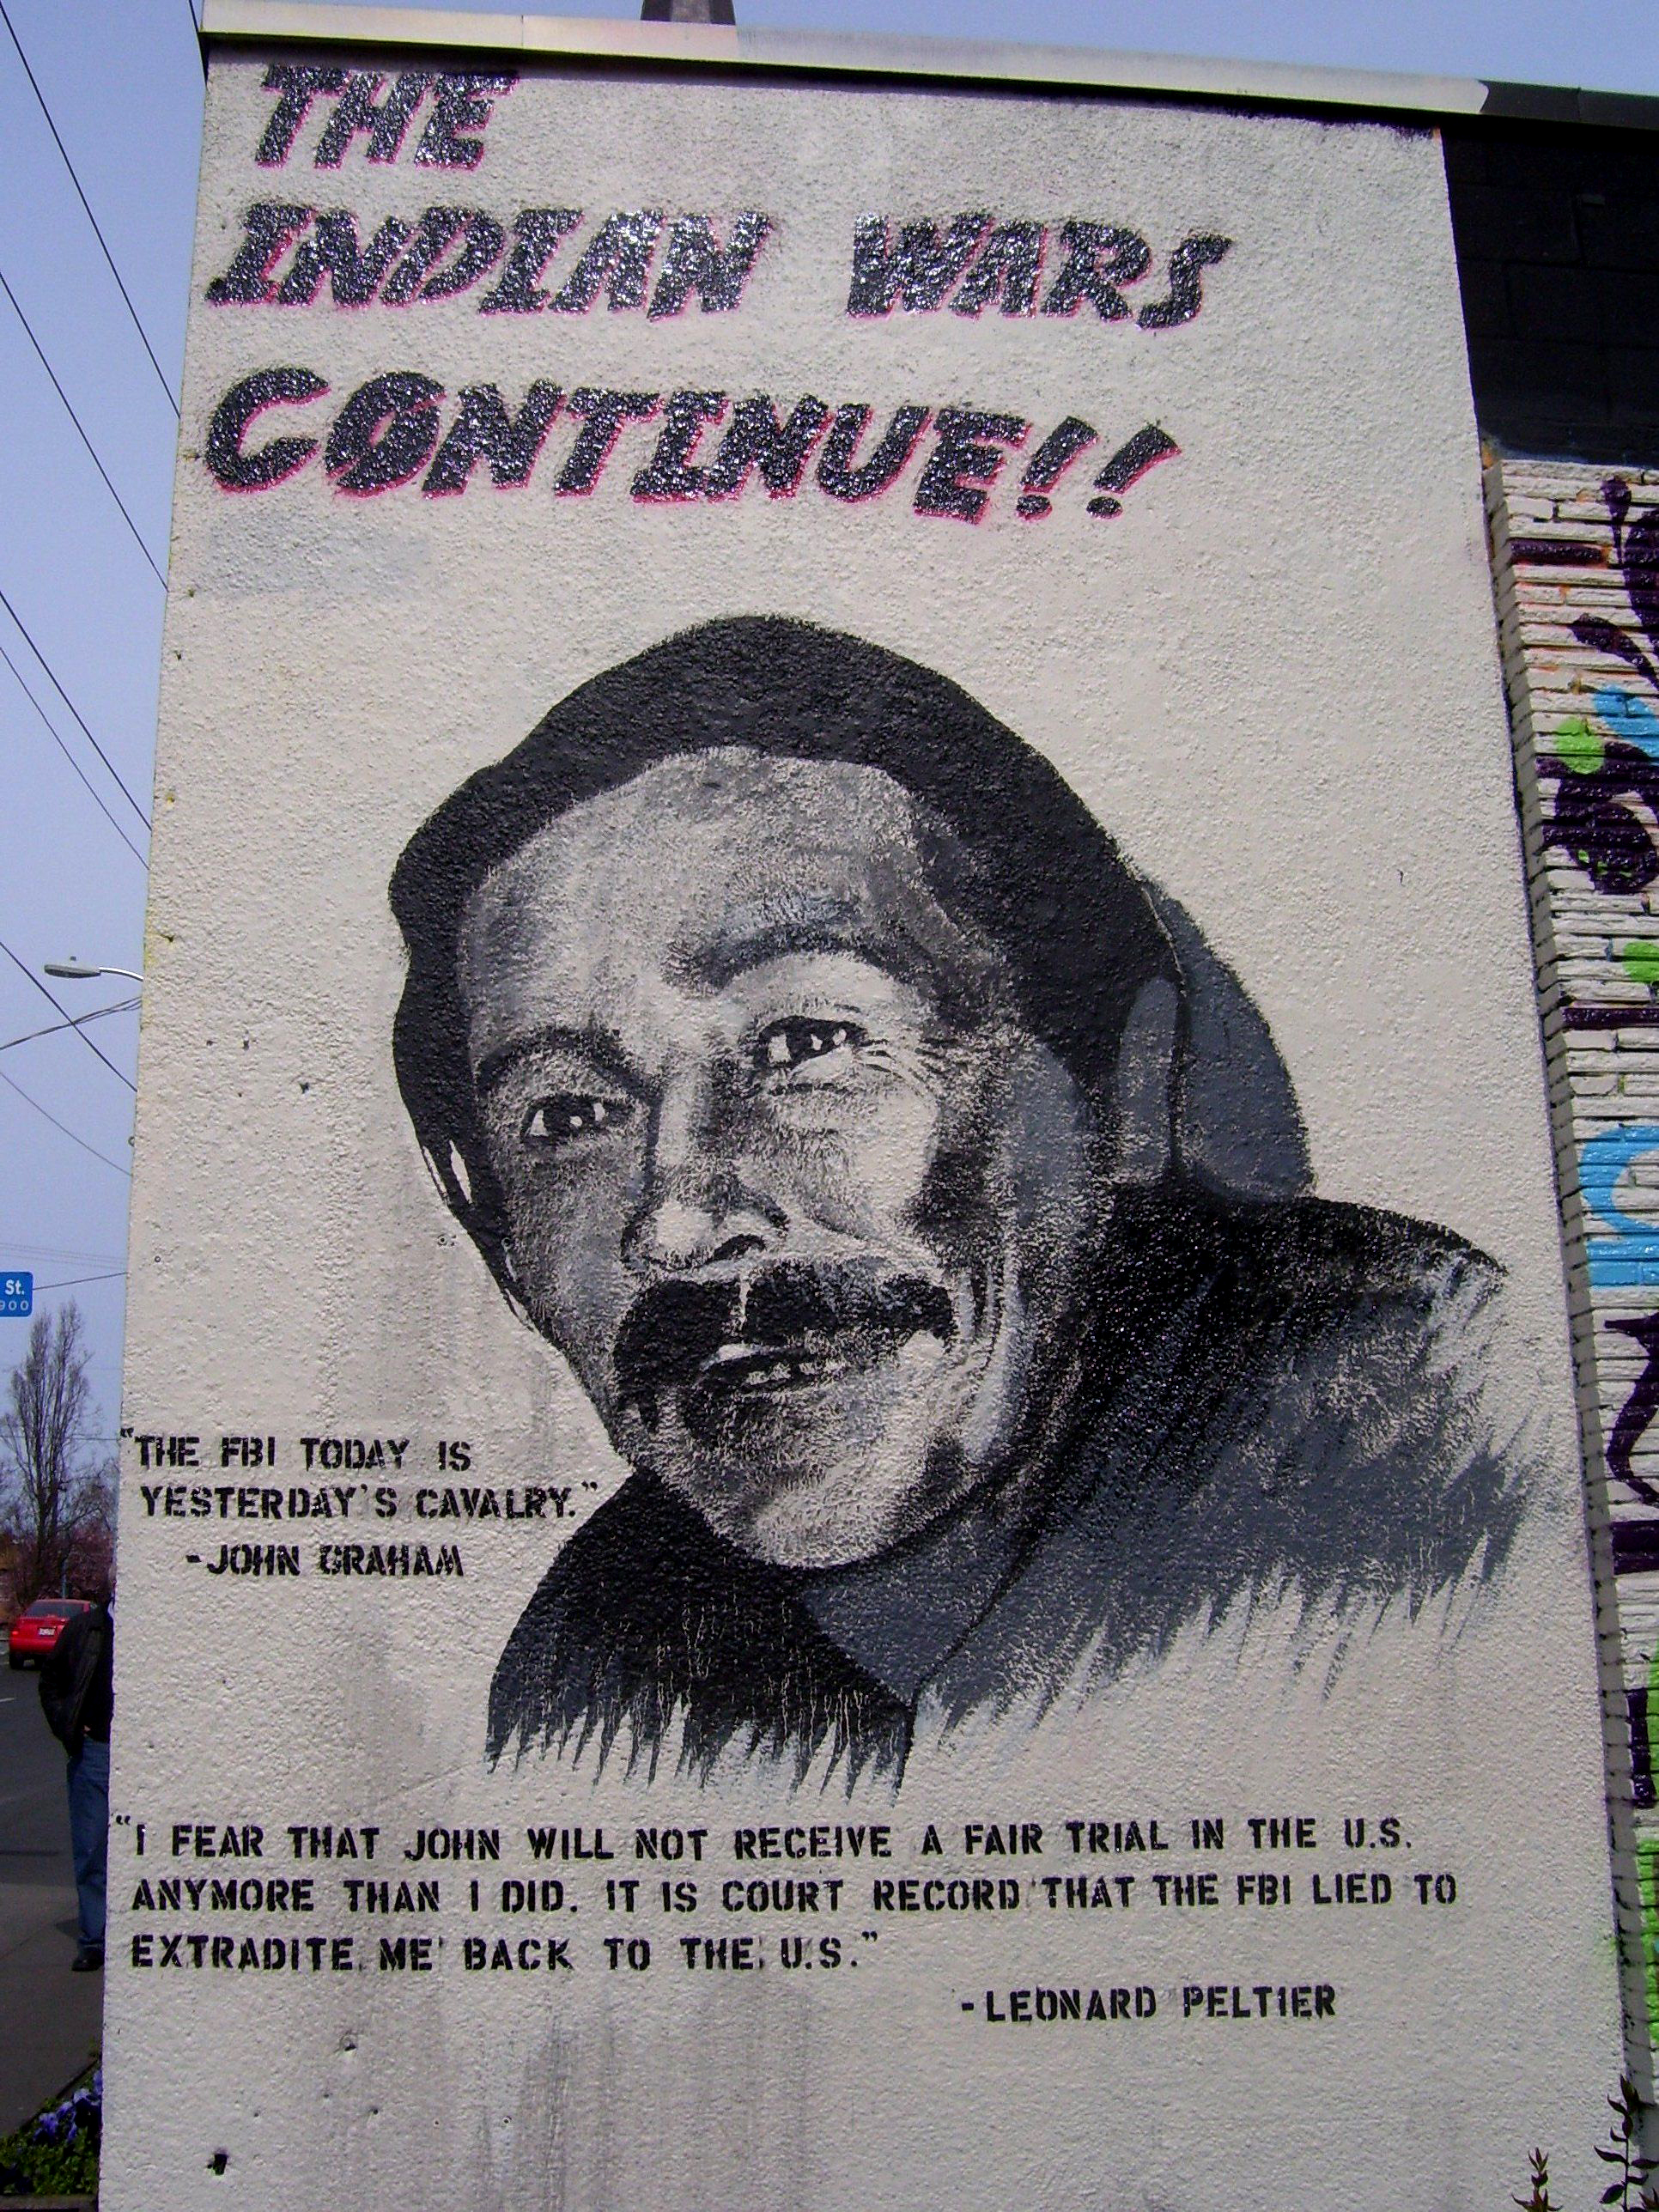 THE
INDIAN WARS
CONTINUE!!
"THE FBI TODAY IS
YESTERDAY'S CAVALRY."
-JOHN GRAHAM
St.
900
"I FEAR THAT JOHN WILL NOT RECEIVE A FAIR TRIAL IN THE U.S.
ANYMORE THAN I DID. IT IS COURT RECORD THAT THE FBI LIED TO
EXTRADITE ME BACK TO THE U.S."
-LEONARD PELTIER